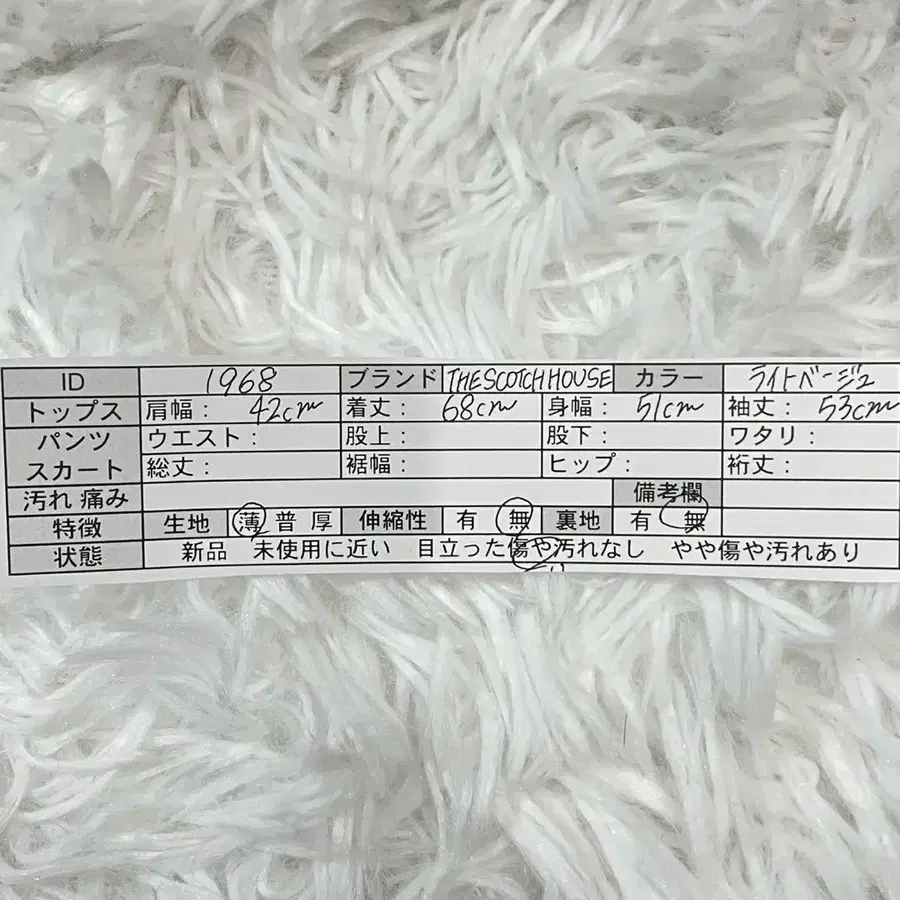 ID 1968 ブランド THE SCOTCH HOUSE カラー ライトベージュ
トップス 肩幅： 42cm 着丈： 68cm 身幅： 51cm 袖丈： 53cm
パンツ ウエスト： 股上： 股下： ワタリ：
スカート 総丈： 裾幅： ヒップ： 裄丈：
汚れ 痛み 備考欄
特徴 生地 薄 普 厚 伸縮性 有 無 裏地 有 無
状態 新品 未使用に近い 目立った傷や汚れなし やや傷や汚れあり